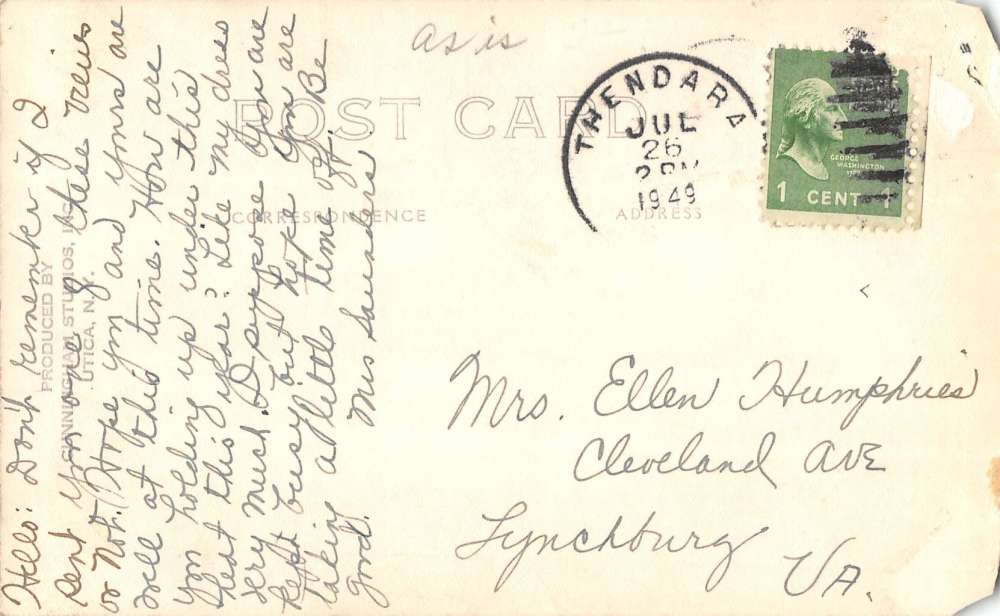 as is
POST CARD
THENDARA
JUL
26
1949
GEORGE
WASHINGTON
1 CENT 1
CORRESPONDENCE
ADDRESS
PRODUCED BY
CUNNINGHAM STUDIOS, INC.
UTICA, N.Y.
Hello: Don't remember if I
sent you one of these views
or not. Hope you and yours are
well at this time. How are
you holding up under this
heat this year? Like my dress
very much. I suppose you are
kept busy but hope you are
taking a little time off. Be
good.
Mrs Saunders
Mrs. Ellen Humphries
Cleveland Ave
Lynchburg
Va.